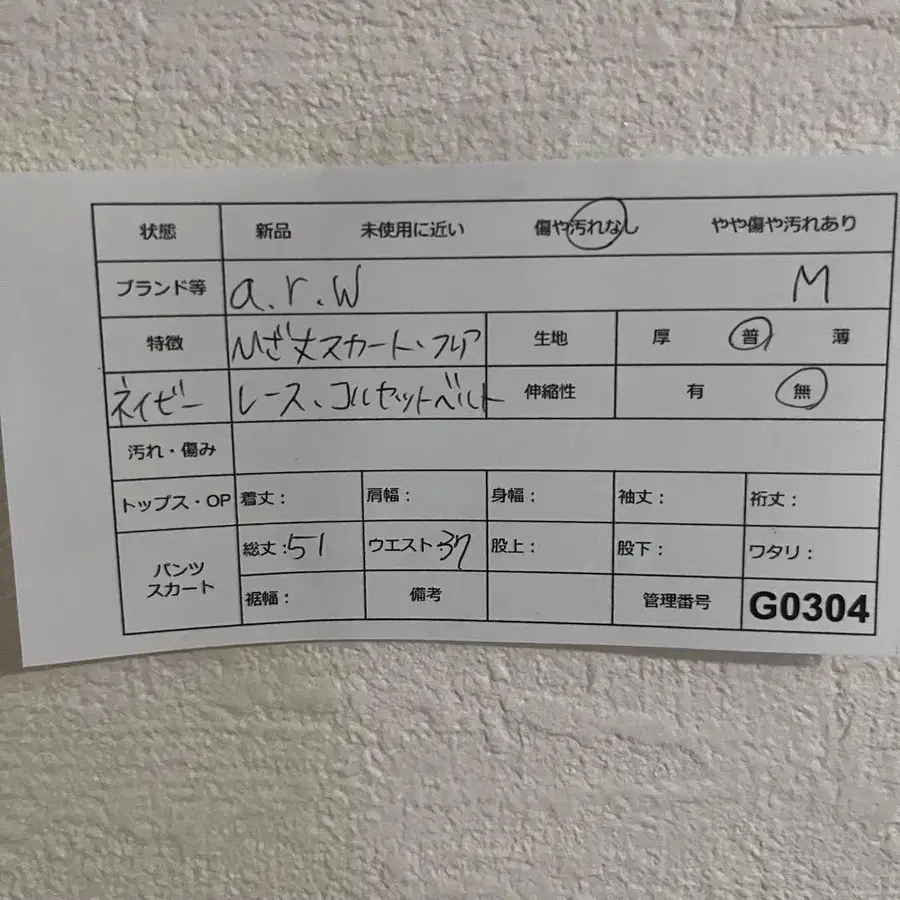 状態 新品 未使用に近い 傷や汚れなし やや傷や汚れあり
ブランド等 a.r.w M
特徴 ひざ丈スカート、フレア 生地 厚 普 薄
ネイビー レース、コルセットベルト 伸縮性 有 無
汚れ・傷み
トップス・OP 着丈: 肩幅: 身幅: 袖丈: 裄丈:
パンツ スカート 総丈:51 ウエスト:37 股上: 股下: ワタリ:
裾幅: 備考 管理番号 G0304